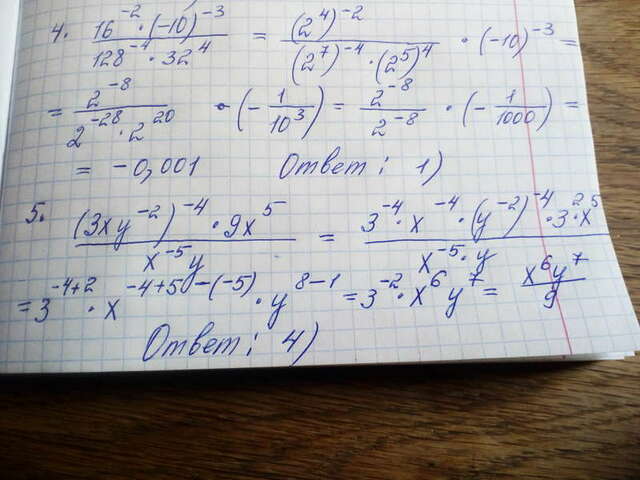 4. (16^-2 · (-10)^-3) / (128^-4 · 32^4) = (2^4)^-2 / ((2^7)^-4 · (2^5)^4) · (-10)^-3 =
= 2^-8 / (2^-28 · 2^20) · (- 1/10^3) = 2^-8 / 2^-8 · (- 1/1000) =
= -0,001 Ответ: 1)
5. ((3xy^-2)^-4 · 9x^5) / (x^-5 y) = (3^-4 · x^-4 · (y^-2)^-4 · 3^2 x^5) / (x^-5 · y)
= 3^-4+2 · x^-4+5-(-5) · y^8-1 = 3^-2 · x^6 y^7 = x^6 y^7 / 9
Ответ: 4)